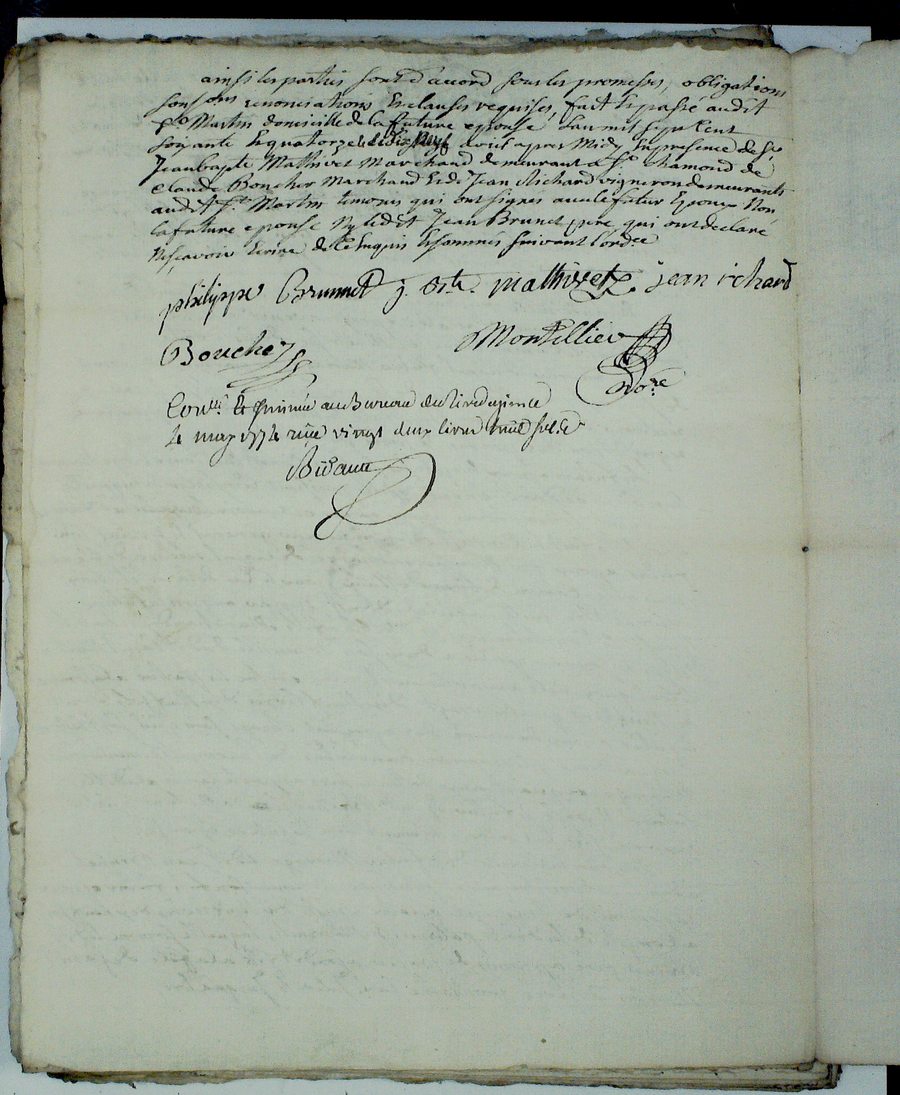 ainsi les parties sont d'accord sous les promesses, obligations
renonciations Et clauses requises, fait Et passé audit
St Martin domicille de la future epouse L'an mil sept Cent
Soixante Et quatorze Le dix Neuf avril apres Midy En presence de Sr
Jean bapte Mathivet Marchand demeurant a St chamond de
Claude Boucher Marchand Et de Jean Richard vigneron demeurants
audit St Martin temoins qui ont signés avec le futur Epoux Non
la future epouse Ny ledit Jean Brunet pere qui ont declaré
Ne sçavoir Ecrire de ce Enquis Et sommés suivant l'ordce
philippe Brunnet j. bte. mathivet jean richard
Boucher Montellier
Nore
au Bureau de Rivedegier ce
4 may 1774 vingt deux livres